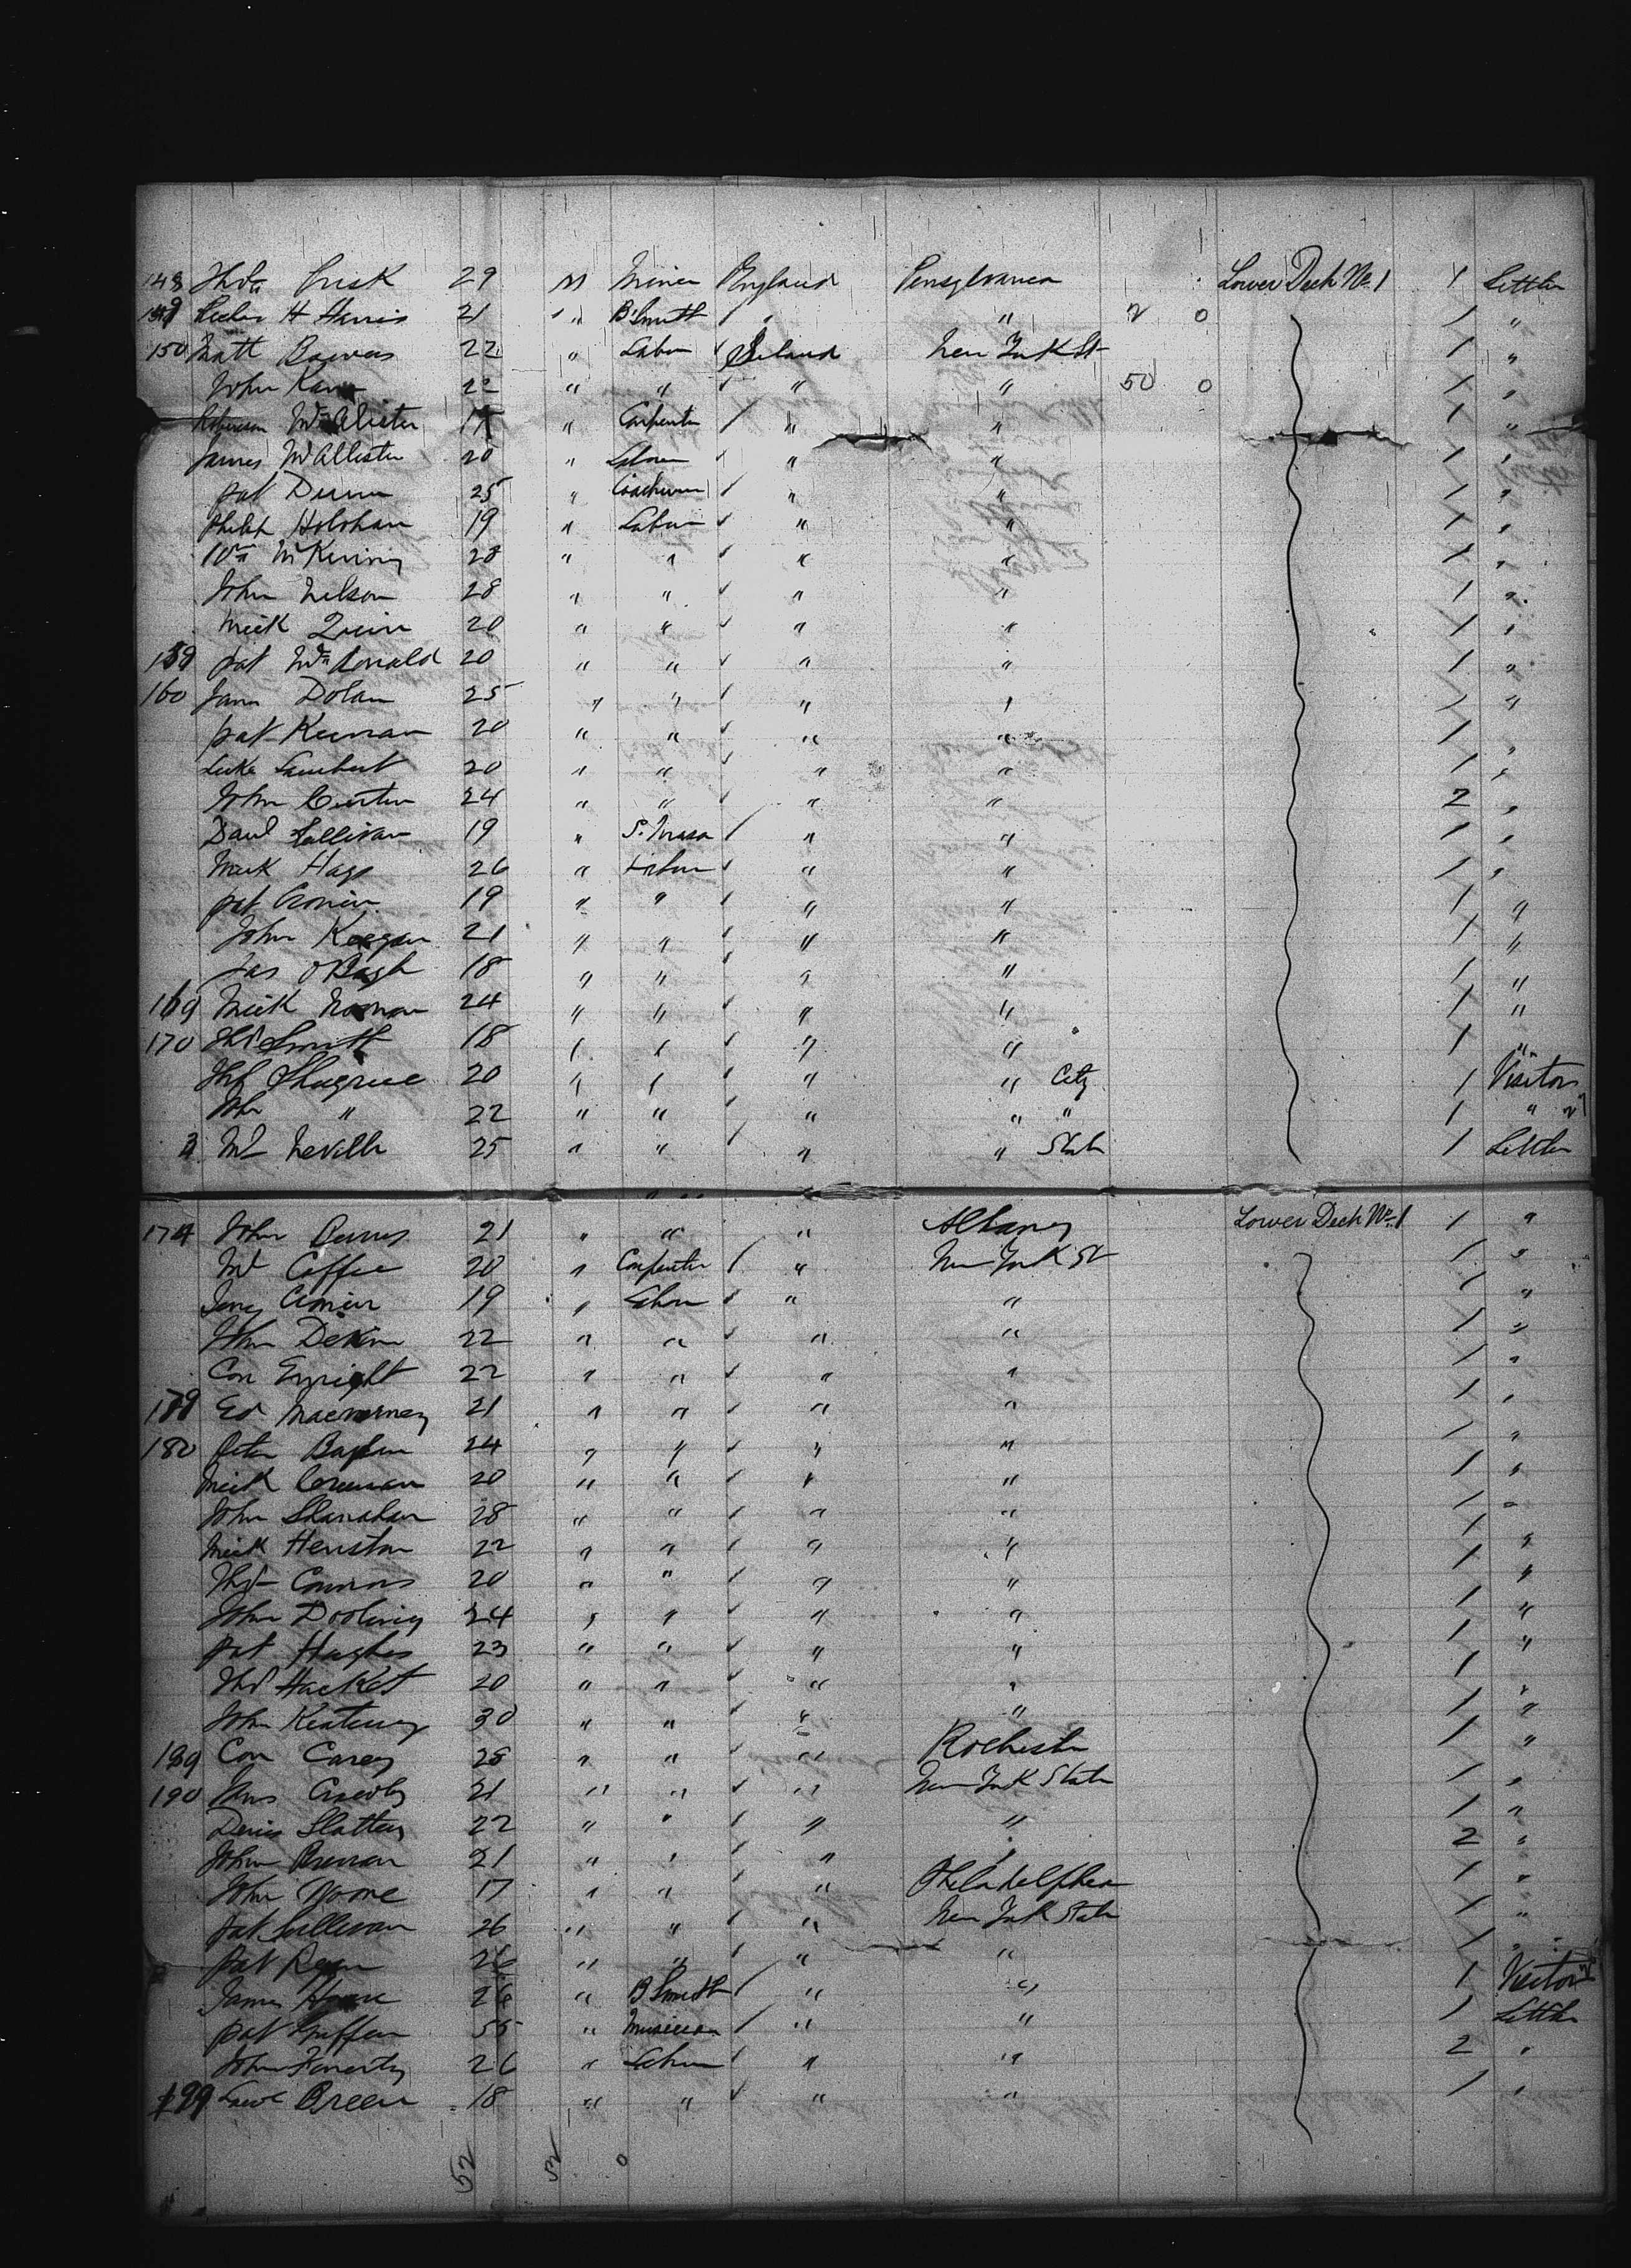 148 Thos Prisk 29 M Miner England Pensylvania Lower Deck No 1 1 Settler
149 H Harris 21 " B. Smith " " 2 0 1 "
150 Matt Bowers 22 " Labor Ireland New York St 1 "
John Kane 22 " " " " 50 0 1 "
Robinson McAlister " Carpenter " " 1 "
James McAllister 20 " Labor " " 1 "
Pat Dunn 25 " Coachman " " 1 "
Philip Holohan 19 " Labor " " 1 "
Wm McKinny 28 " " " " 1 "
John Nelson 28 " " " " 1 "
Mick Quin 20 " " " " 1 "
159 Pat McDonald 20 " " " " 1 "
160 James Dolan 25 " " " " 1 "
Pat Keenan 20 " " " " 1 "
Luke Lambert 20 " " " " 1 "
John Curtin 24 " " " " 2 "
Danl Sullivan 19 " S. Mason " " 1 "
Mick Hays 26 " Labor " " 1 "
Pat Cronin 19 " " " " 1 "
John Keegan 21 " " " " 1 "
Jas 18 " " " " 1 "
169 Mick Noonan 24 " " " " 1 "
170 Thos Smith 18 " " " " 1 "
Shugrue 20 " " " " City 1 Visitor
John " 22 " " " " " 1 "
3 Ml Neville 25 " " " " State 1 Settler
174 John Burns 21 " " " Albany Lower Deck No 1 1 "
Ml Coffee 20 " Carpenter " New York St 1 "
Jerry Cronin 19 " Labor " " 1 "
John Devine 22 " " " " 1 "
Con Enright 22 " " " " 1 "
179 Ed Macnerney 21 " " " " 1 "
180 Peter 24 " " " " 1 "
Mick 20 " " " " 1 "
John Shanahan 28 " " " " 1 "
Mick Heuston 22 " " " " 1 "
Thos Connors 20 " " " " 1 "
John Dooling 24 " " " " 1 "
Pat Hughes 23 " " " " 1 "
Thos Hacket 20 " " " " 1 "
John 30 " " " " 1 "
189 Con Carey 28 " " " Rochester 1 "
190 Crowley 21 " " " New York State 1 "
Denis Slattery 22 " " " " 1 "
John Brennan 21 " " " " 2 "
John Noone 17 " " " Philadelphia 1 "
Pat Sullivan 26 " " " New York State 1 "
Pat Regan 26 " " " " 1 "
James 26 " B Smith " " 1 Visitor
Pat Griffin 55 " Musician " " 1 Settler
John Finerty 26 " Labor " " 2 "
199 Lawe Breen 18 " " " " 1 "
52 52 0